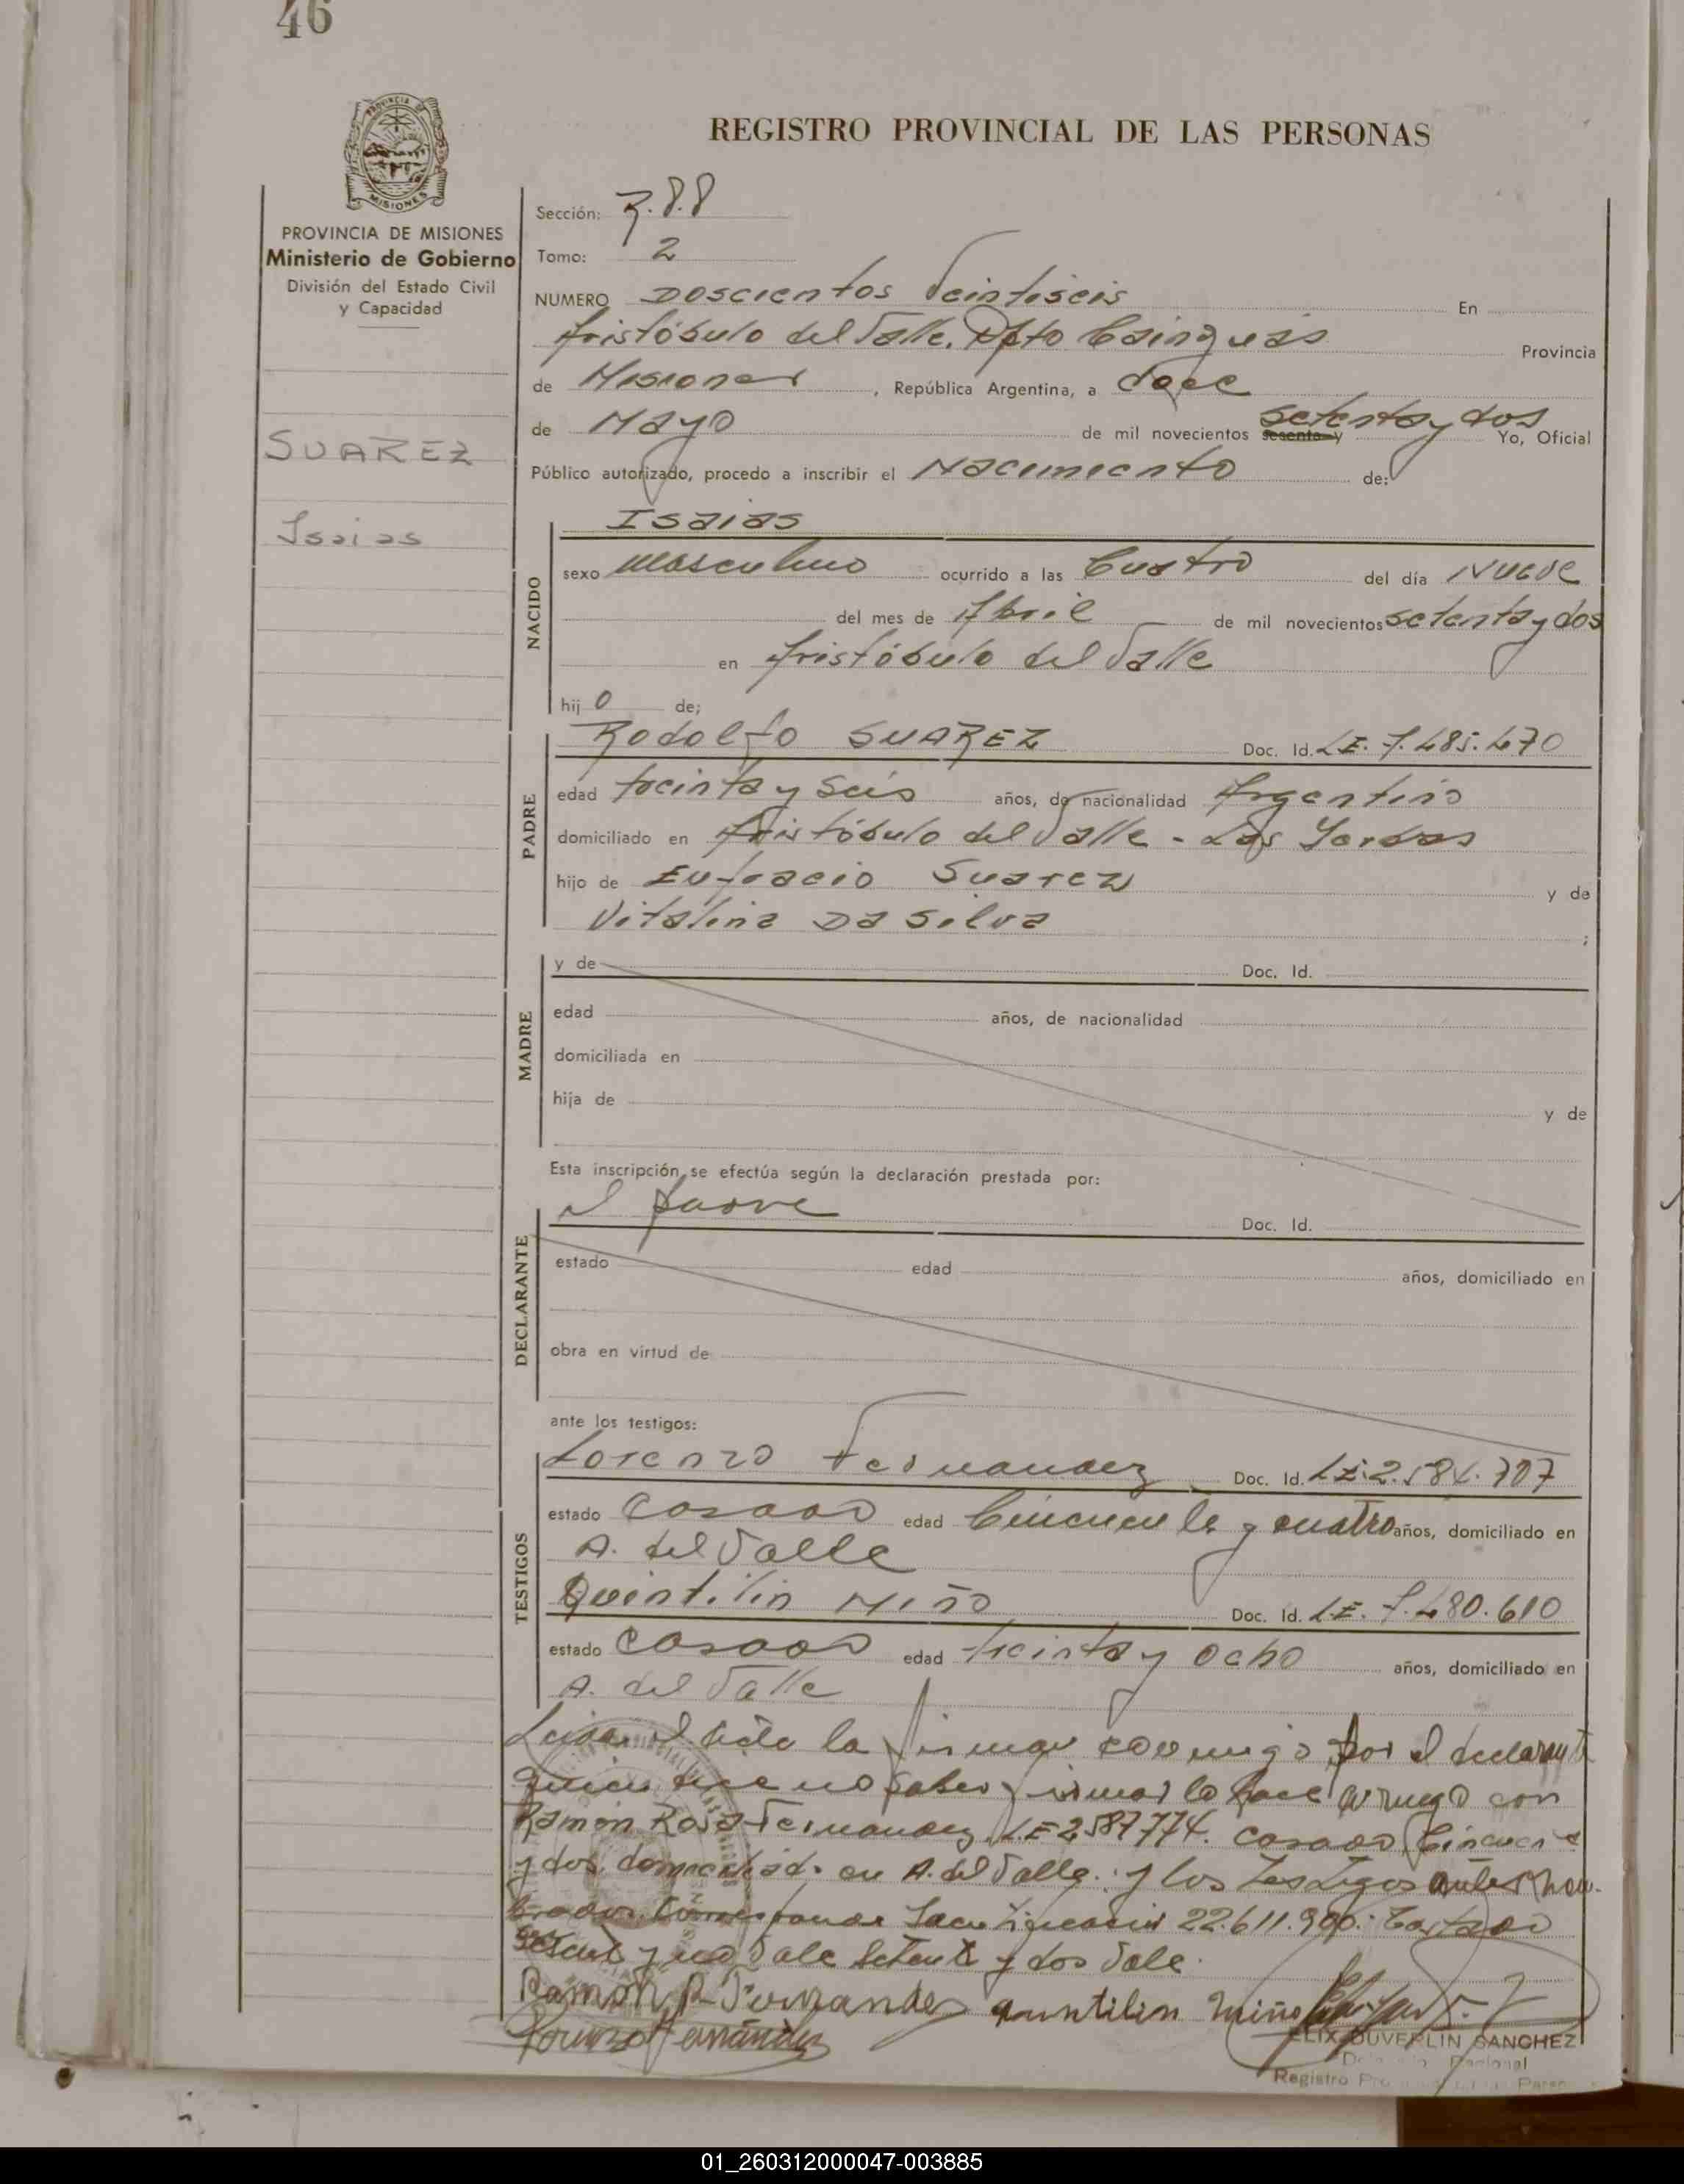 46
PROVINCIA DE
MISIONES
REGISTRO PROVINCIAL DE LAS PERSONAS
PROVINCIA DE MISIONES
Ministerio de Gobierno
División del Estado Civil
y Capacidad
SUAREZ
Isaias
Sección: 7.8.8
Tomo: 2
NUMERO Doscientos Veintiseis En
Aristóbulo del Valle. Dpto Cainguás Provincia
de Misiones, República Argentina, a doce
de Mayo de mil novecientos sesenta y setenta y dos Yo, Oficial
Público autorizado, procedo a inscribir el Nacimiento de:
NACIDO
Isaias
sexo Masculino ocurrido a las Cuatro del día Nueve
del mes de Abril de mil novecientos setenta y dos
en Aristóbulo del Valle
hij o de;
PADRE
Rodolfo SUAREZ Doc. Id. LE. 7.485.470
edad treinta y seis años, de nacionalidad Argentino
domiciliado en Aristóbulo del Valle - Las
hijo de Eufracio Suarez y de
Vitalina Da Silva ;
MADRE
y de Doc. Id.
edad años, de nacionalidad
domiciliada en
hija de y de
Esta inscripción se efectúa según la declaración prestada por:
DECLARANTE
el padre Doc. Id.
estado edad años, domiciliado en
obra en virtud de
ante los testigos:
TESTIGOS
Lorenzo Fernandez Doc. Id. LE. 2.584.707
estado casado edad Cincuenta y cuatro años, domiciliado en
A. del Valle
Quintilin Miño Doc. Id. LE. 7.480.610
estado casado edad treinta y ocho años, domiciliado en
A. del Valle
Leida el acta la firman conmigo por el declarante
quien dice no saber firmar lo hace a ruego con
Ramón Rosa Fernandez LE 2587774. casado Cincuenta
y dos domiciliado en A. del Valle. y los testigos antes nom-
brados. Corresponde 22.611.900. Testado
sesenta y no vale setenta y dos Vale.
Ramón R Fernandez quintilin miño
Lorenzo Fernández
FELIX DUVERLIN SANCHEZ
Registro
01_260312000047-003885